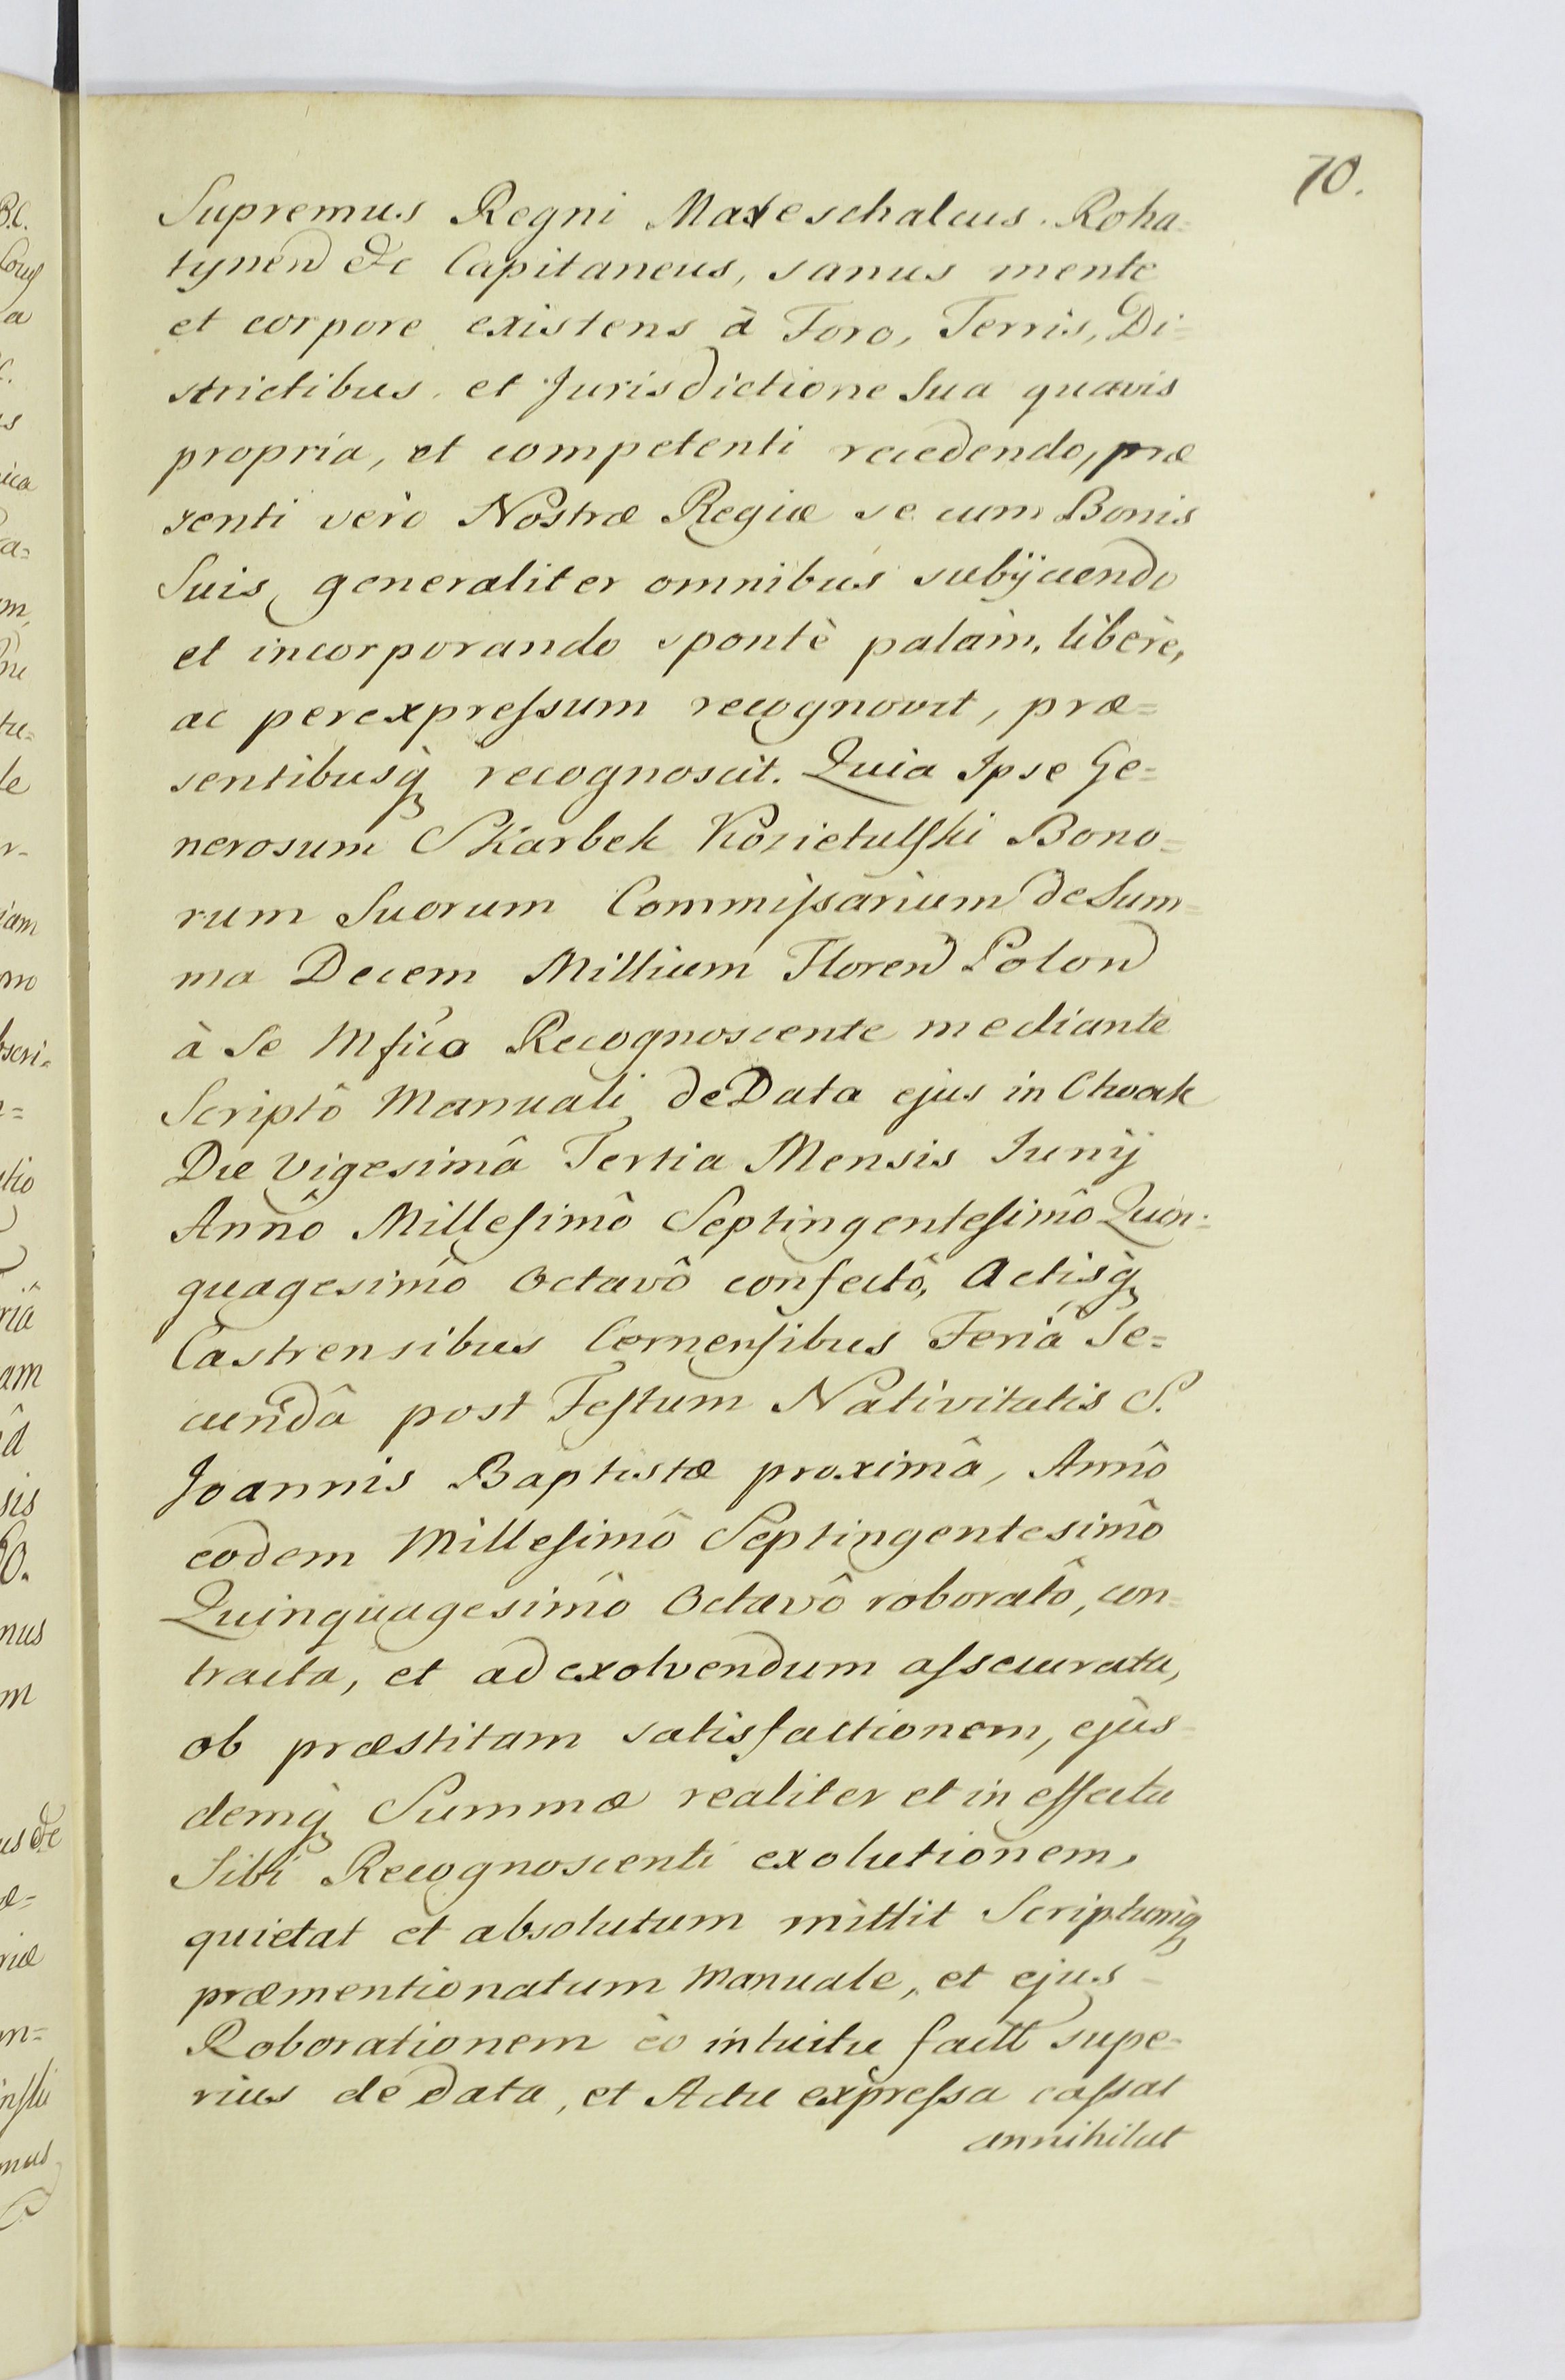 70.
Supremus Regni Mareschalcus. Roha=
tynen &c Capitaneus, sanus mente
et corpore existens à Foro, Terris, Di=
strictibus, et Jurisdictione Sua quavis
propria, et competenti recedendo, præ
senti verò Nostræ Regiæ se cum Bonis
Suis generaliter omnibus subijciendo
et incorporando spontè palàm, liberè,
ac per expreſsum recognovit, præ=
sentibusq̀ recognoscit. Quia Ipse Ge=
nerosum Skarbek Kozietulſki Bono=
rum Suorum Commiſsarium de Sum=
ma Decem Millium Floren Polon
à Se Mfico Recognoscente mediante
Scriptô Manuali de Data ejus in
Die Vigesimâ Tertia Mensis Junij
Annô Milleſimô Septingenteſimô Quin=
quagesimô Octavô confectô, Actisq̀
Castrensibus Cernenſibus Feriâ Se=
cundâ post Feſtum Nativitatis S.
Joannis Baptistæ proximâ, Annô
eodem Milleſimô Septingentesimô
Quinquagesimô Octavô roboratô, con=
tracta, et ad exolvendum aſsecurata,
ob præstitam satisfactionem, ejus=
demq̀ Summæ realiter et in effectu
Sibi Recognoscenti exolutionem,
quietat et absolutum mittit Scriptumq̀
præmentionatum Manuale, et ejus
Roborationem eo intuitu factt supe=
rius de data, et Actu expreſsa caſsat
annihilat
B.C.
a
am
sis
nus
m
us &c